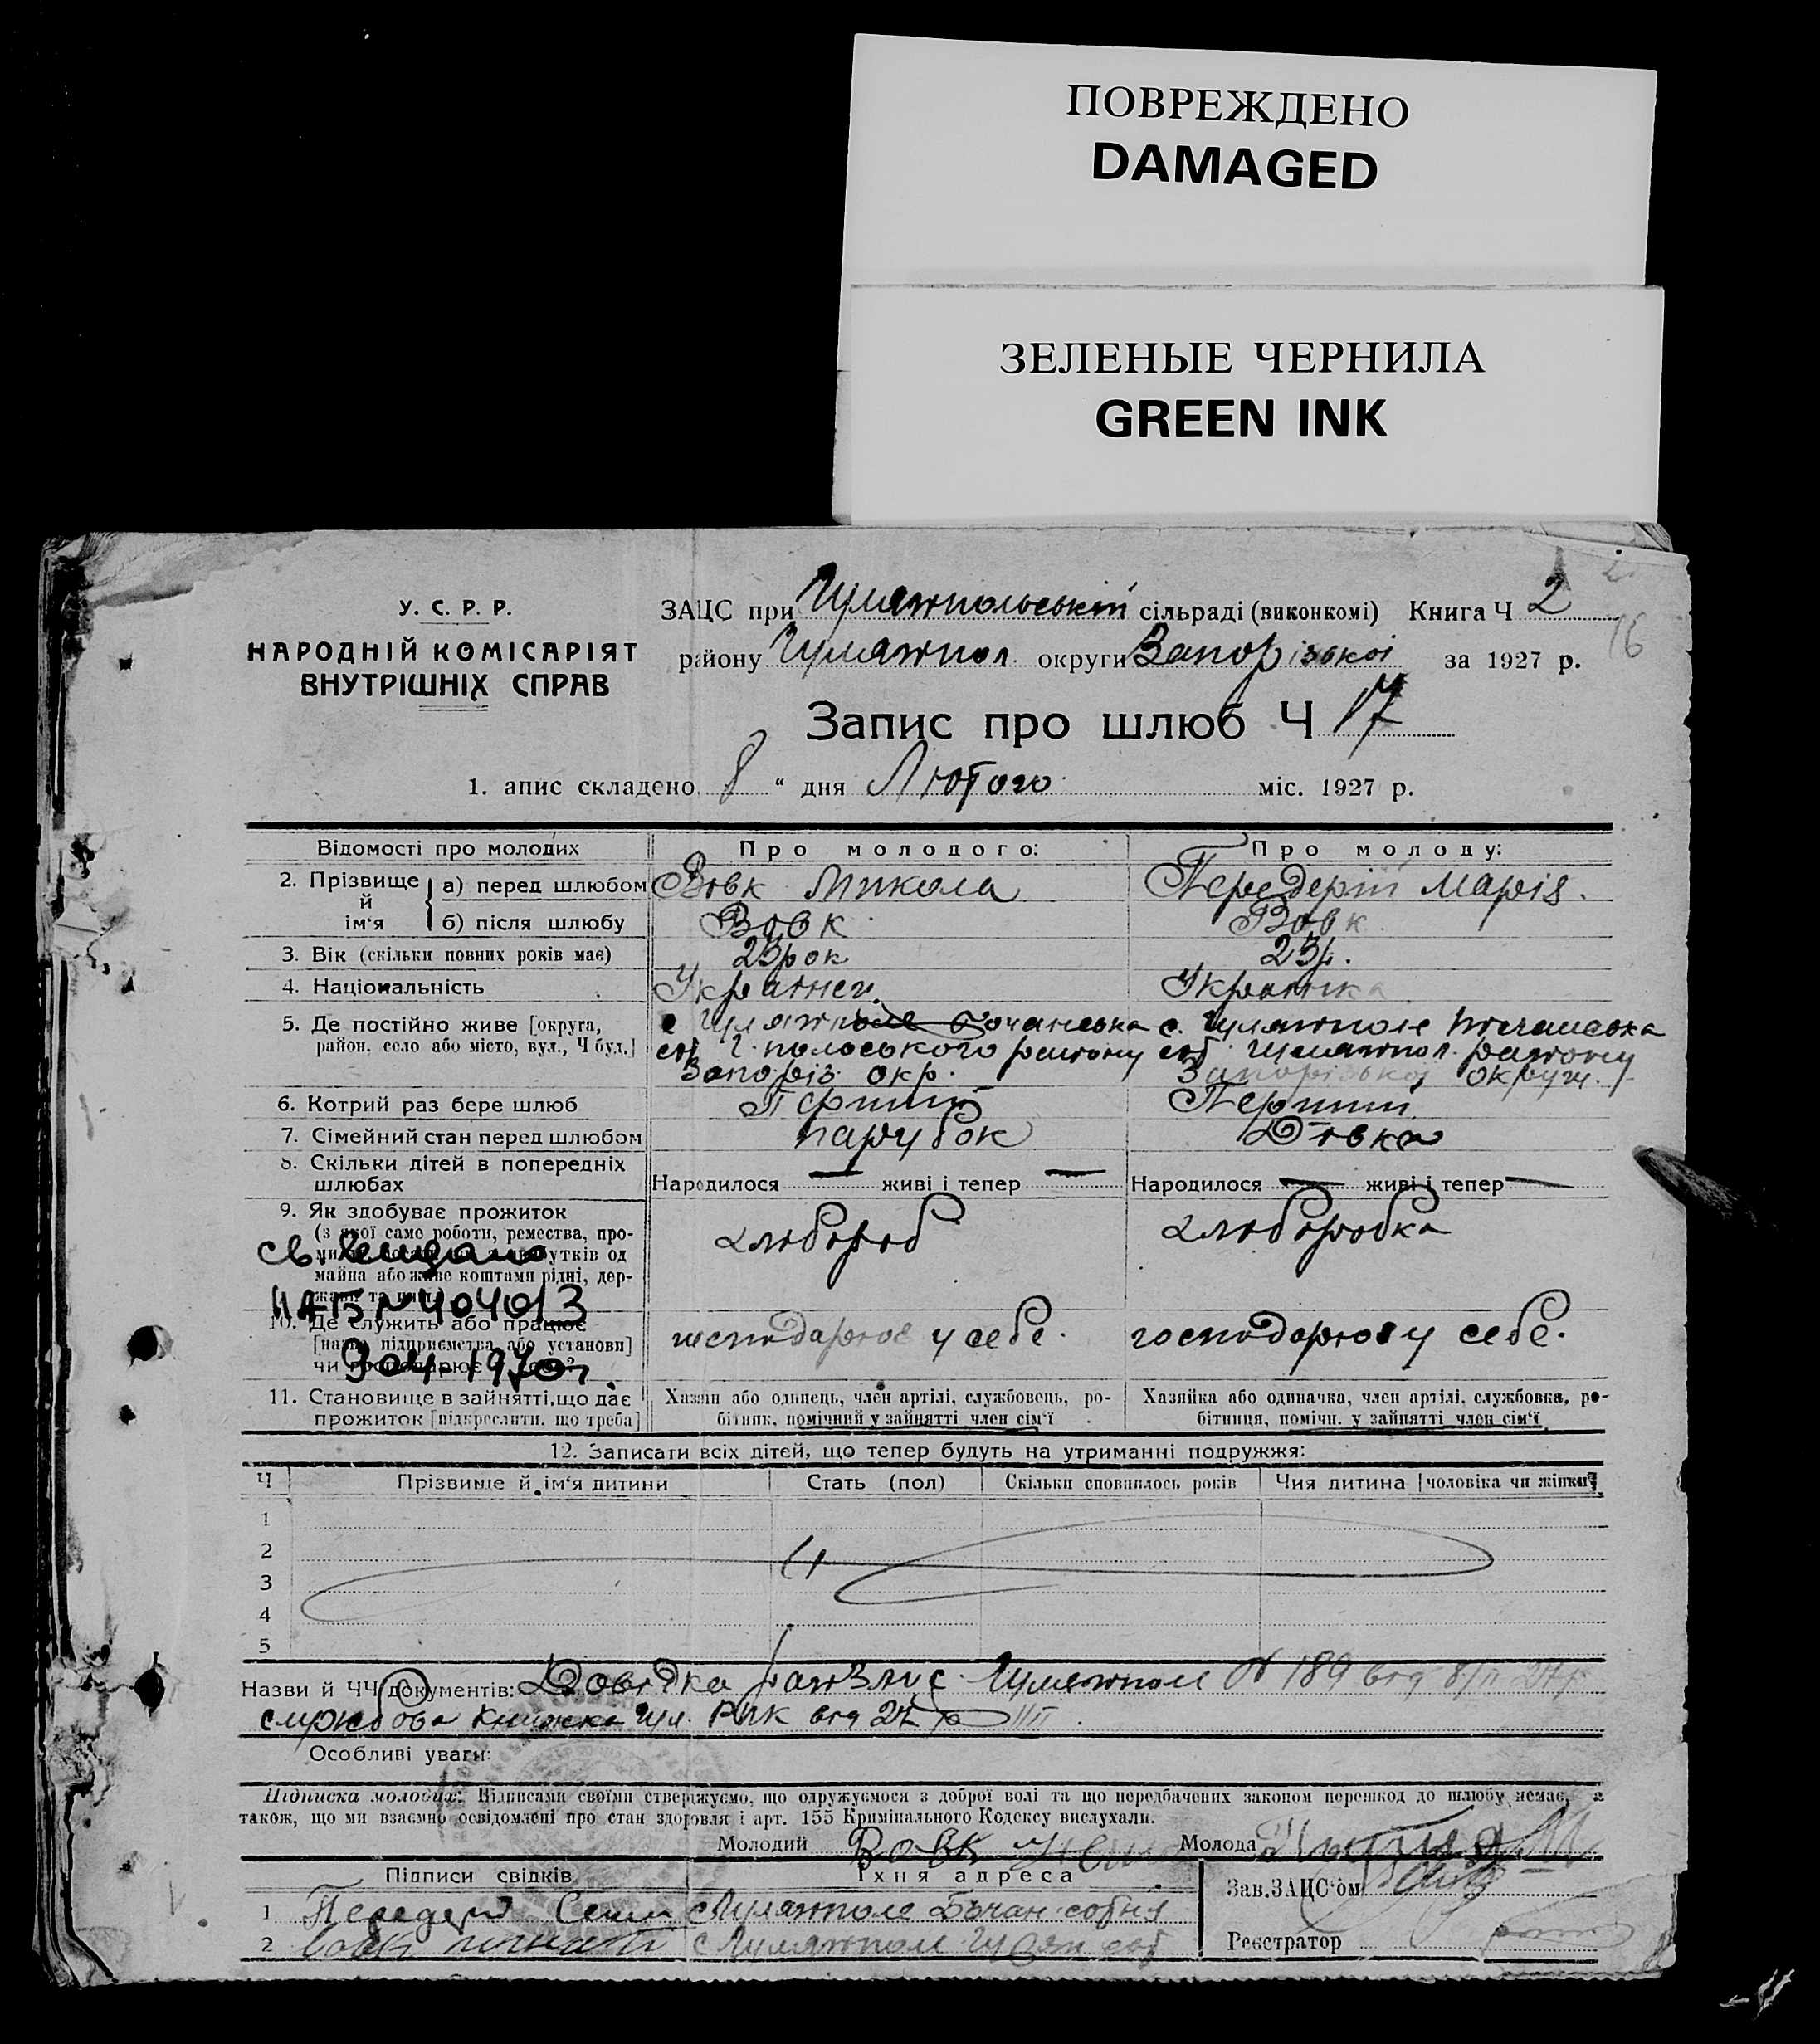 ПОВРЕЖДЕНО
DAMAGED
ЗЕЛЕНЫЕ ЧЕРНИЛА
GREEN INK
У. С. Р. Р.
НАРОДНІЙ КОМІСАРІЯТ
ВНУТРІШНІХ СПРАВ
ЗАЦС при Гуляйпольській сільраді (виконкомі) Книга Ч 2
16
району Гуляйпол. округи Запорізької за 1927 р.
Запис про шлюб Ч 17
1. апис складено 8 “ дня Лютого міс. 1927 р.
Відомості про молодих Про молодого: Про молоду:
2. Прізвище й ім‘я а) перед шлюбом Вовк Микола Передерій Марія.
б) після шлюбу Вовк Вовк
3. Вік (скільки повних років має) 23 рок 23 р.
4. Національність Українец. Українка
5. Де постійно живе [округа, район, село або місто, вул., Ч буд.]
с. Гуляйполе Бочанська сот. Г. польського району Запоріз. окр.
с. Гуляйполе сот. Гуляйпол. району Запорізької округи.
6. Котрий раз бере шлюб Перший Перший
7. Сімейний стан перед шлюбом парубок Дівка
8. Скільки дітей в попередніх шлюбах Народилося — живі і тепер — Народилося — живі і тепер —
9. Як здобуває прожиток хлібороб хлыборобка
(з якої само роботи, ремества, про-
майна або живе коштами рідні, дер-
№ 404013
10. Де служить або працює господарює у себе. господарює у себе.
[назва підприємства або установи]
1970 г.
11. Становище в зайнятті, що дає прожиток [підкреслити, що треба]
Хазяїн або одинець, член артілі, службовець, ро-
бітник, помічний у зайнятті член сім‘ї
Хазяйка або одиначка, член артілі, службовка, ро-
бітниця, помічн. у зайнятті член сім‘ї
12. Записати всіх дітей, що тепер будуть на утриманні подружжя:
Ч Прізвище й ім‘я дитини Стать (пол) Скільки сповнилось років Чия дитина [чоловіка чи жінки]
1
2
3
4
5
Назви й ЧЧ документів: Довідка Гуляйполе № 189 від 8/II 27 р
книжка Гул. РИК від
Особливі уваги:
Підписка молодих: Підписами своїми стверджуємо, що одружуємося з доброї волі та що передбачених законом перешкод до шлюбу немає, а
також, що ми взаємно освідомлені про стан здоровля і арт. 155 Кримінального Кодексу вислухали.
Молодий Вовк Молода
Підписи свідків Їхня адреса Зав. ЗАЦС‘ом
1 Передерій с Гуляйполе Бочан сотня
2 с Гуляйполе сот Реєстратор